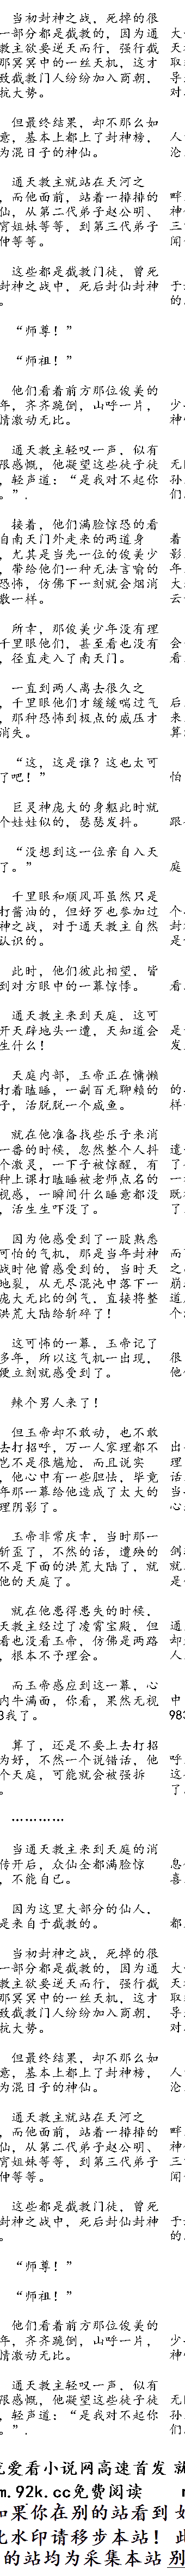 当初封神之战，死掉的很
部分都是截教的，因为通 大
教主欲要逆天而行，强行截 天
那冥冥中的一丝天机，这才 取
致截教门人纷纷加入商朝， 导
抗大势。 对
但最终结果，却不那么如
意，基本上都上了封神榜， 人
为混日子的神仙。 沦
通天教主就站在天河之
，而他面前，站着一排排的 畔
仙，从第二代弟子赵公明、 神
霄姐妹等等，到第三代弟子 三
仲等等。 闻
这些都是截教门徒，曾死
封神之战中，死后封仙封神 于
。 的
“师尊！”
“师祖！”
他们看着前方那位俊美的
年，齐齐跪倒，山呼一片， 少
情激动无比。 神
通天教主轻叹一声，似有
限感慨，他凝望这些徒子徒 无
，轻声道：“是我对不起你 孙
。”. 们
接着，他们满脸惊恐的看
自南天门外走来的两道身 着
，尤其是当先一位的俊美少 影
，带给他们一种无法言喻的 年
恐怖，仿佛下一刻就会烟消 大
散一样。 云
所幸，那俊美少年没有理
千里眼他们，甚至看也没有 会
，径直走入了南天门。 看
一直到两人离去很久之
，千里眼他们才缓缓喘过气 后
，那种恐怖到极点的威压才 来
消失。 算
“这，这是谁？这也太可
了吧！” 怕
巨灵神庞大的身躯此时就
个娃娃似的，瑟瑟发抖。 跟
“没想到这一位亲自入天
了。” 庭
千里眼和顺风耳虽然只是
打酱油的，但好歹也参加过 个
神之战，对于通天教主自然 封
认识的。 是
此时，他们彼此相望，皆
到对方眼中的一幕惊悸。 看
通天教主来到天庭，这可
开天辟地头一遭，天知道会 是
生什么！ 发
天庭内部，玉帝正在慵懒
打着瞌睡，一副百无聊赖的 的
子，活脱脱一个咸鱼。 样
就在他准备找些乐子来消
一番的时候，忽然整个人抖 遣
个激灵，一下子被惊醒，有 了
种上课打瞌睡被老师点名的 一
视感，一瞬间什么睡意都没 既
，活生生吓没了。 了
因为他感受到了一股熟悉
可怕的气机，那是当年封神 而
战时他曾感受到的，当时天 之
地裂，从无尽混沌中落下一 崩
庞大无比的剑气，直接将整 道
洪荒大陆给斩碎了！ 个
这可怖的一幕，玉帝记了
多年，所以这气机一出现， 很
便立刻就感受到了。 他
辣个男人来了！
但玉帝却不敢动，也不敢
去打招呼，万一人家理都不 出
岂不是很尴尬，而且说实 理
，他心中有一些胆怯，毕竟 话
年那一幕给他造成了太大的 当
理阴影了。 心
玉帝非常庆幸，当时那一
斩歪了，不然的话，遭殃的 剑
不是下面的洪荒大陆了，就 就
他的天庭了。 是
就在他患得患失的时候，
天教主经过了凌霄宝殿，但 通
看也没看玉帝，仿佛是两路 却
，根本不予理会。 人
而玉帝感应到这一幕，心
内牛满面，你看，果然无视 中
3我了。 983
算了，还是不要上去打招
为好，不然一个说错话，他 呼
个天庭，可能就会被强拆 这
。 了
…………
当通天教主来到天庭的消
传开后，众仙全都满脸惊 息
，不能自已。 喜
因为这里大部分的仙人，
是来自于截教的。 都
当初封神之战，死掉的很
部分都是截教的，因为通 大
教主欲要逆天而行，强行截 天
那冥冥中的一丝天机，这才 取
致截教门人纷纷加入商朝， 导
抗大势。 对
但最终结果，却不那么如
意，基本上都上了封神榜， 人
为混日子的神仙。 沦
通天教主就站在天河之
，而他面前，站着一排排的 畔
仙，从第二代弟子赵公明、 神
霄姐妹等等，到第三代弟子 三
仲等等。 闻
这些都是截教门徒，曾死
封神之战中，死后封仙封神 于
。 的
“师尊！”
“师祖！”
他们看着前方那位俊美的
年，齐齐跪倒，山呼一片， 少
情激动无比。 神
通天教主轻叹一声，似有
限感慨，他凝望这些徒子徒 无
，轻声道：“是我对不起你 孙
。”. 们
爱看小说网高速首发 就
m.92k.cc免费阅读
如果你在别的站看到 如
此水印请移步本站！ 此
的站均为采集本站 别